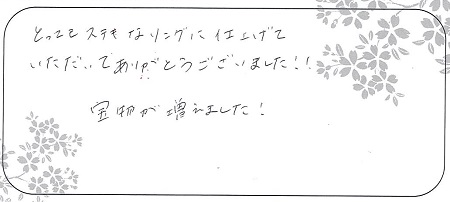 とってもステキなリングに仕上げて
いただいてありがとうございました!!
宝物が増えました!